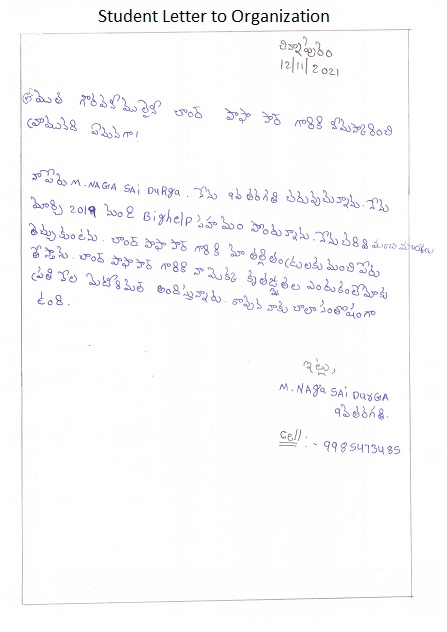 Student Letter to Organization
చిన్నాపురం
12/11/2021
గారికి నమస్కరించి
వ్రాయునది ఏమనగా!
నా పేరు M. NAGA SAI DURGA. నేను 9వ తరగతి చదువుతున్నాను. నేను
2019 నుండి Bighelp సహాయం పొందుతున్నాను. నేను చదివి మంచి మార్కులు
తెచ్చుకుంటాను. గారికి మా తల్లితండ్రులకు మంచి పేరు
తెస్తాను. గారికి నా యొక్క కృతజ్ఞతలు ఎందుకంటే మాకు
ప్రతి నెల మెటీరియల్ అందిస్తున్నారు. కావున నాకు చాలా సంతోషంగా
ఉంది.
ఇట్లు,
M. NAGA SAI DURGA
9వ తరగతి.
Cell :- 9985473485